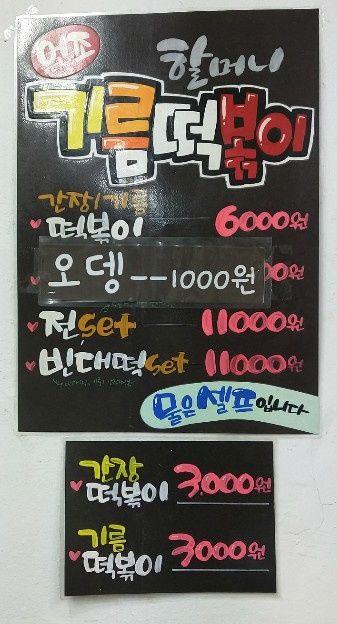 원조
할머니
기름떡볶이
간장/기름
떡볶이 6000원
오뎅--1000원
전set 11000원
빈대떡set 11000원
물은 셀프입니다
간장
떡볶이 3.000원
기름
떡볶이 3000원